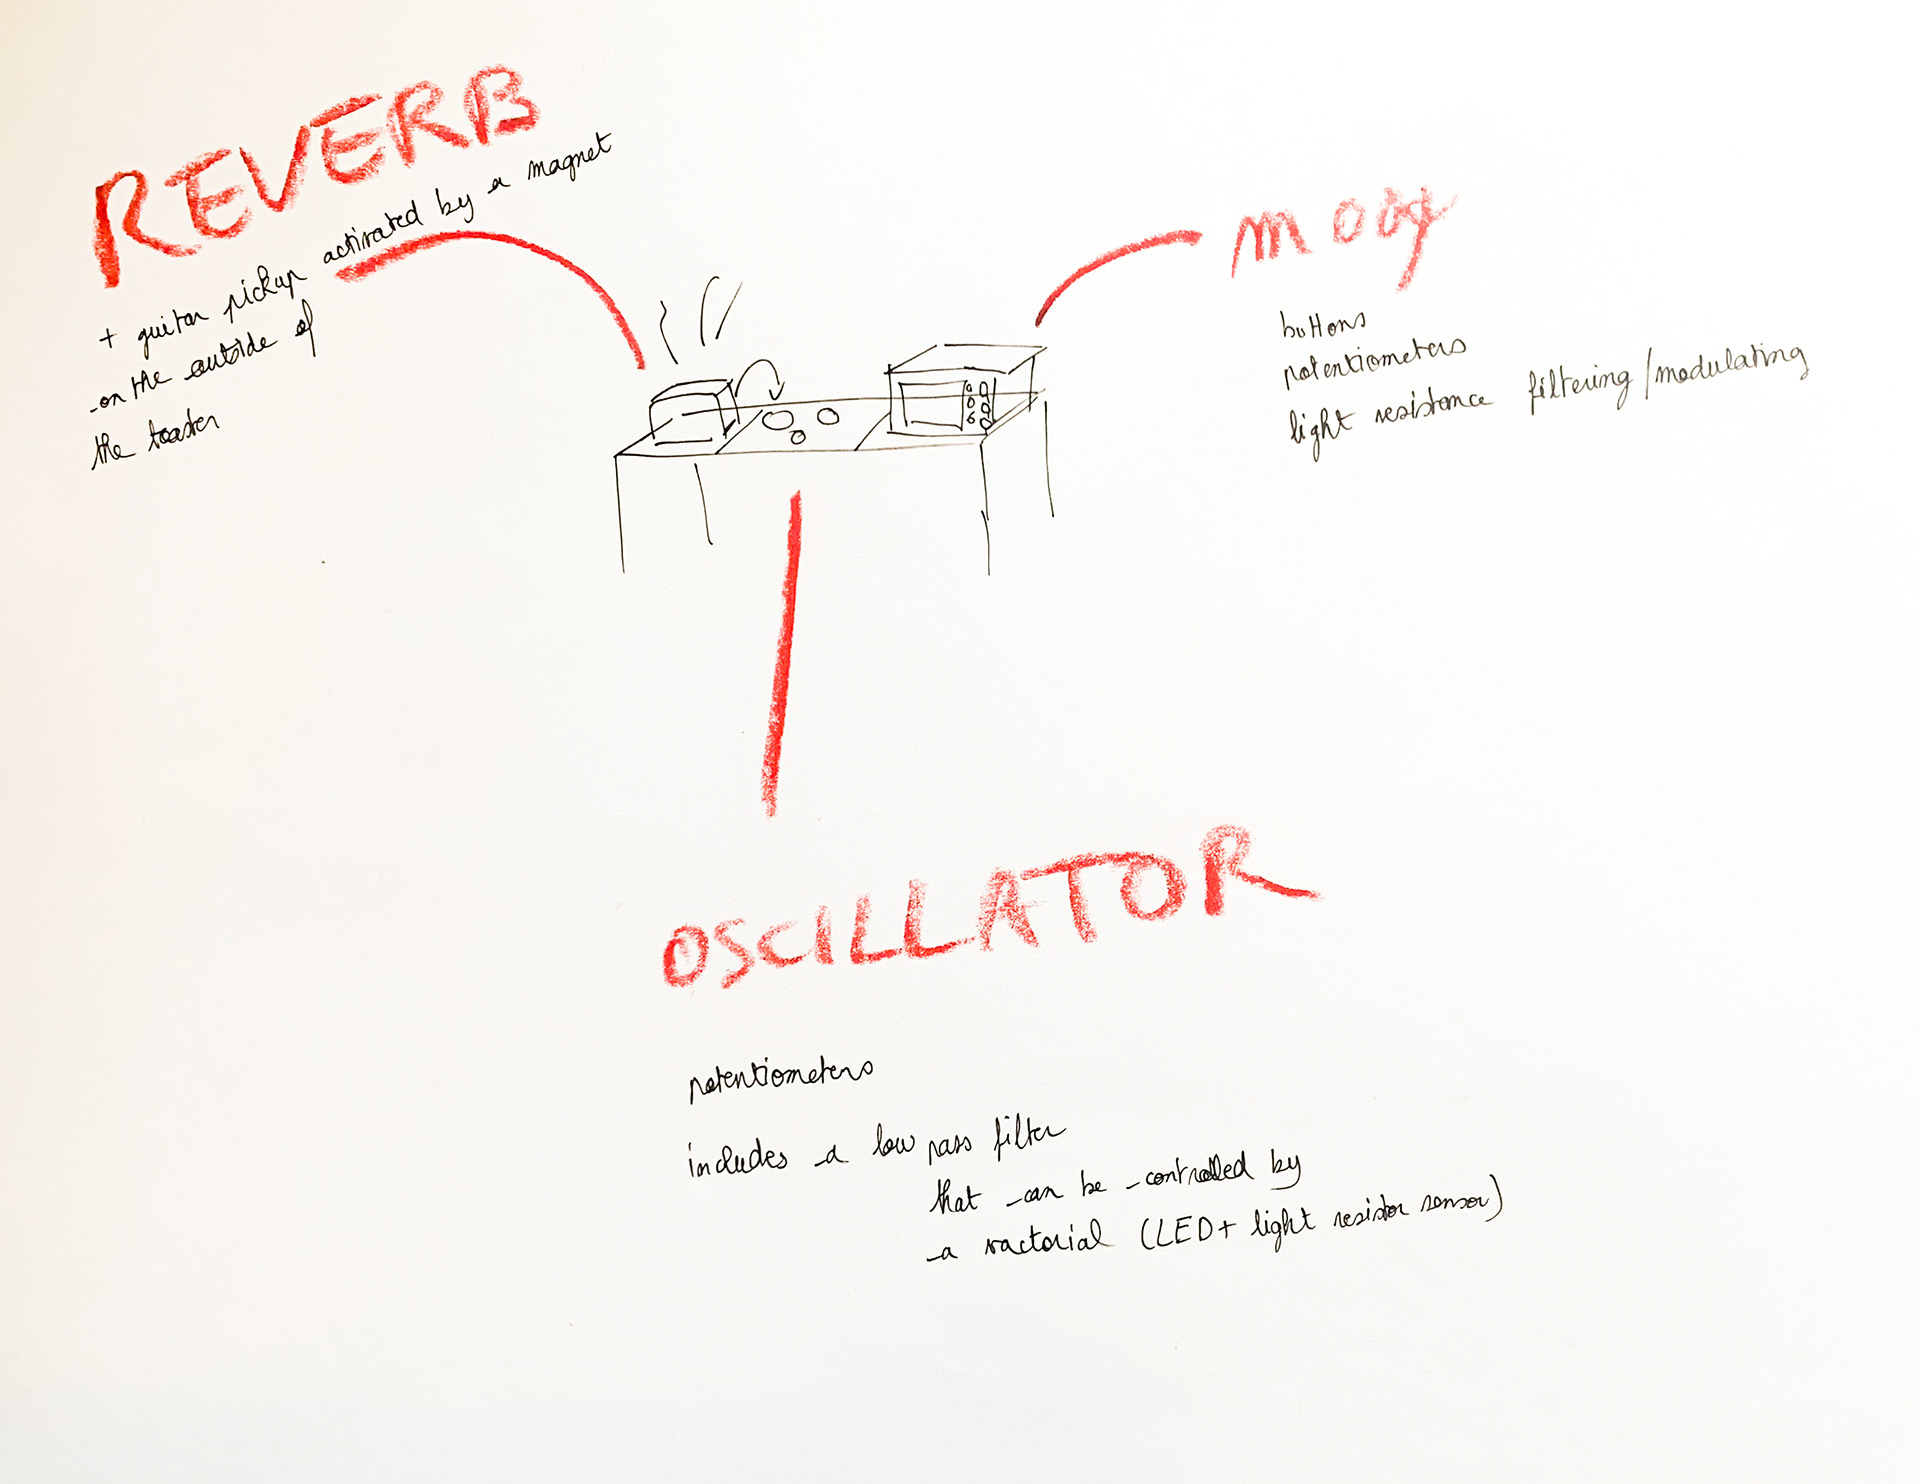 REVERB
+ guitar pickup activated by a magnet
on the outside of
the toaster
moog
buttons
potentiometers
light resistance filtering/modulating
OSCILLATOR
potentiometers
includes a low pass filter
that can be controlled by
a vactorial (LED + light resistor sensor)